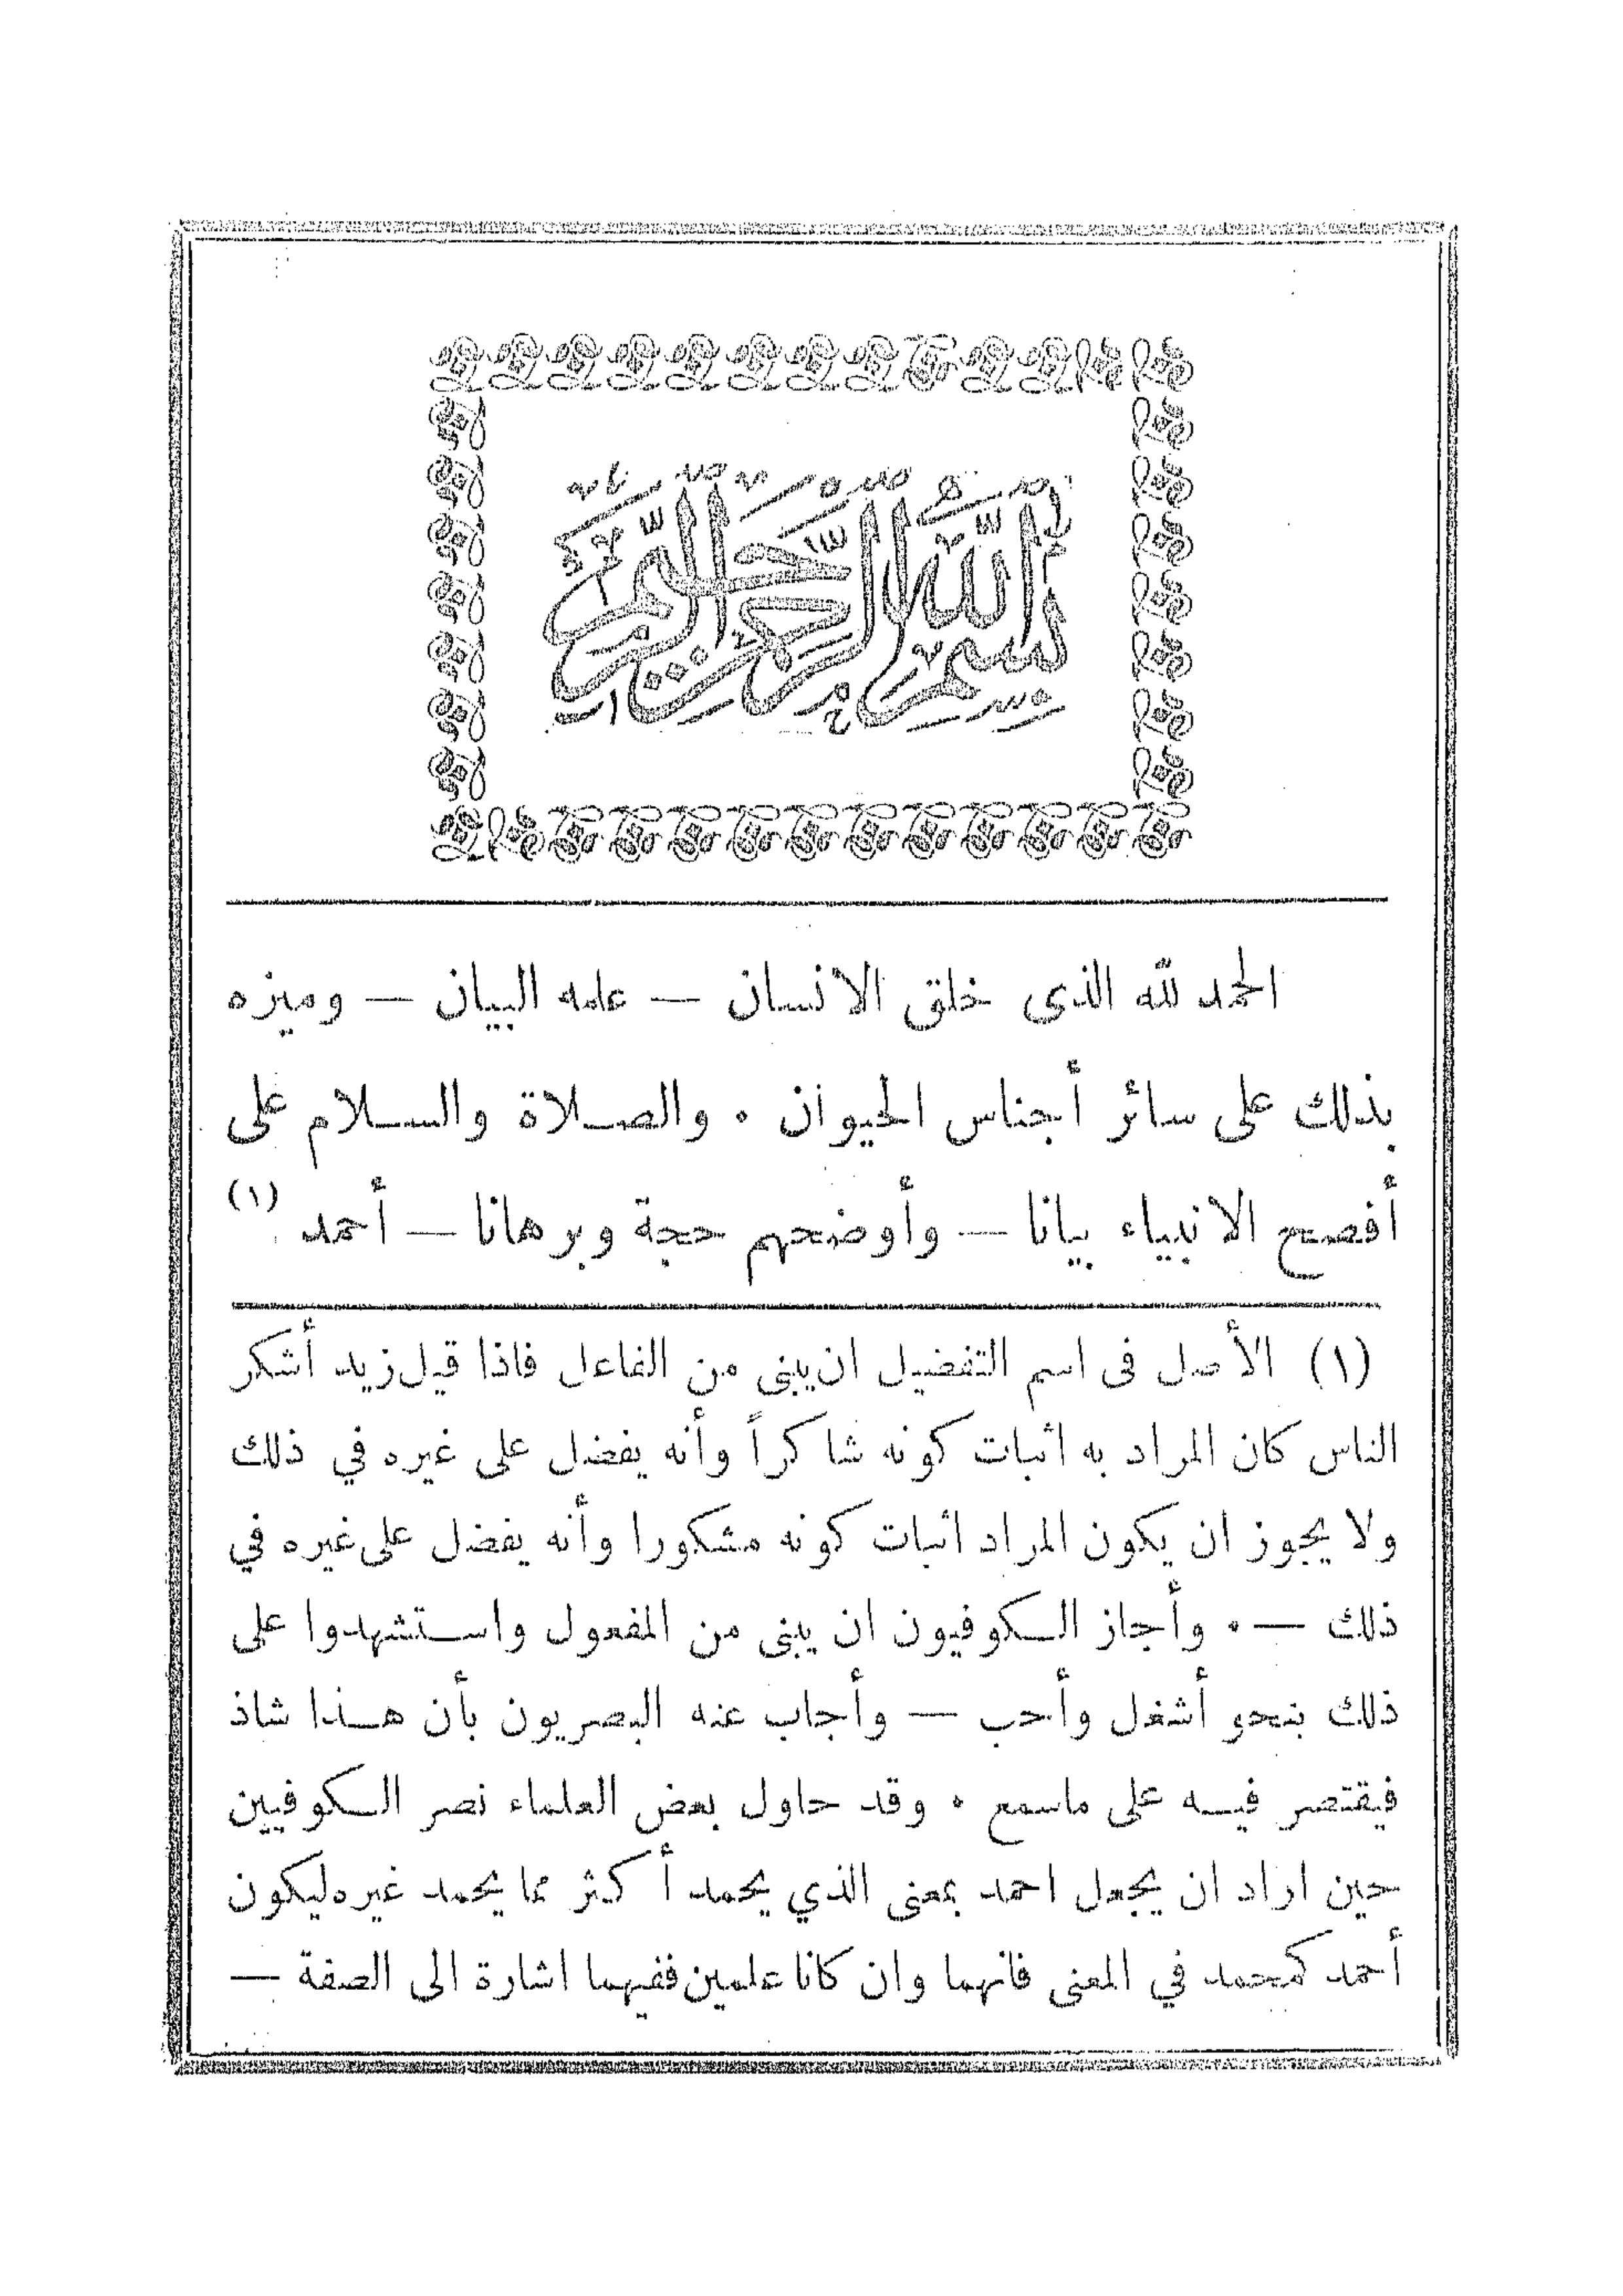 بسم الله الرحمن الرحيم
الحمد لله الذى خلق الانسان — علمه البيان — وميزه
بذلك على سائر أجناس الحيوان . والصلاة والسلام على
أفصح الانبياء بيانا — وأوضحهم حجة وبرهانا — أحمد (١)
(١) الأصل فى اسم التفضيل ان يبنى من الفاعل فاذا قيل زيد أشكر
الناس كان المراد به اثبات كونه شاكراً وأنه يفضل على غيره في ذلك
ولا يجوز ان يكون المراد اثبات كونه مشكورا وأنه يفضل على غيره في
ذلك — . وأجاز الكوفيون ان يبنى من المفعول واستشهدوا على
ذلك بنحو أشغل وأحب — وأجاب عنه البصريون بأن هذا شاذ
فيقتصر فيه على ماسمع . وقد حاول بعض العلماء نصر الكوفيين
حين اراد ان يجعل احمد بمعنى الذي يحمد أكثر مما يحمد غيره ليكون
أحمد كمحمد في المعنى فانهما وان كانا علمين ففيهما اشارة الى الصفة —